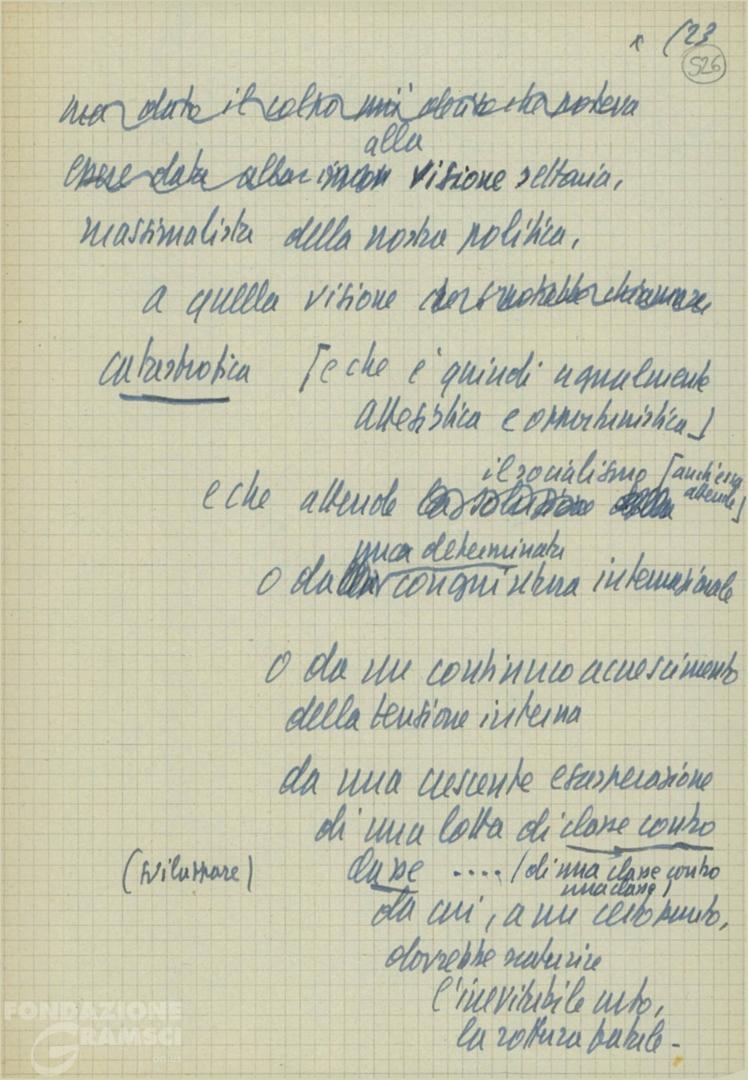 x (23
526
ma dato il colpo più deciso che poteva
alla
essere data alla visione settaria,
massimalista della nostra politica,
a quella visione che si potrebbe chiamare
catastrofica [e che è quindi egualmente
attesistica e opportunistica]
il socialismo [anch'essa
attende]
e che attende la soluzione della
una determinata
o dalla congiuntura internazionale
o da un continuo accrescimento
della tensione interna
da una crescente esasperazione
di una lotta di classe contro
(sviluppare) classe .... (di una classe contro
una classe)
da cui, a un certo punto,
dovrebbe scaturire
l'inevitabile urto,
la rottura fatale -
FONDAZIONE
GRAMSCI